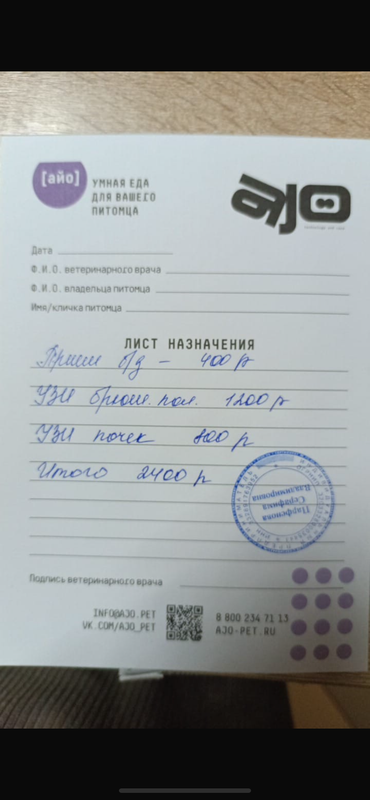 [айо]
УМНАЯ ЕДА
ДЛЯ ВАШЕГО
ПИТОМЦА
AJO
Дата
Ф.И.О. ветеринарного врача
Ф.И.О. владельца питомца
Имя/кличка питомца
ЛИСТ НАЗНАЧЕНИЯ
Прием б/д – 400 р
УЗИ брюш. пол. 1200 р
УЗИ почек 800 р
Итого 2400 р
Парфенова
Серафима
Владимировна
Подпись ветеринарного врача
INFO@AJO.PET
VK.COM/AJO_PET
8 800 234 71 13
AJO-PET.RU